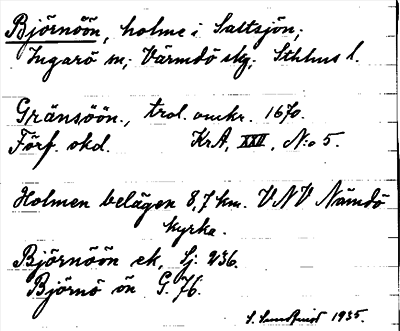 Björnöön, holme i Saltsjön;
Ingarö sn; Värmdö skg; Sthlms l.
Gränsöön., trol. omkr. 1670.
Förf. okd. KrA, XXII, N:o 5.
Holmen belägen 8,7 km. VNV Nämdö
kyrka.
Björnöön ek, Sj. 236.
Björnö ön G. 76.
S. Sundqvist 1935.